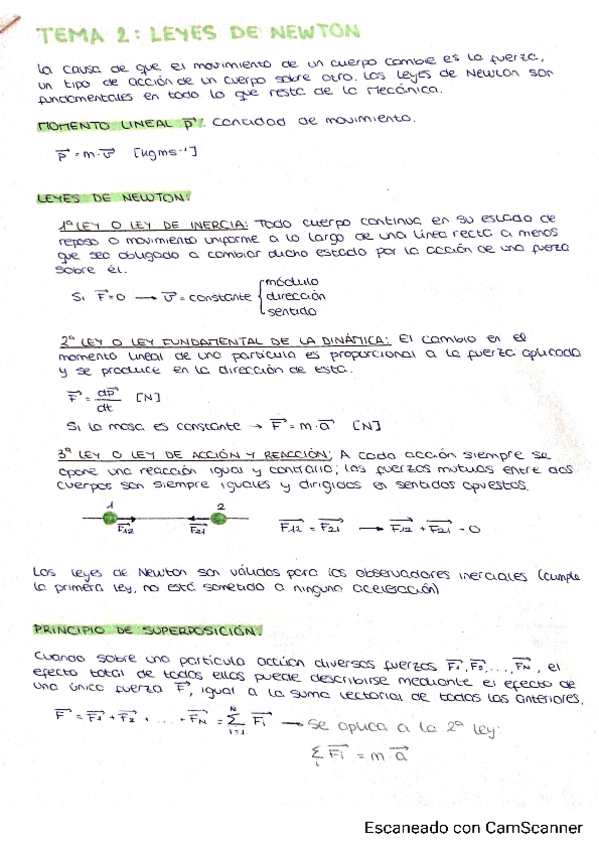 TEMA 2: LEYES DE NEWTON
La causa de que el movimiento de un cuerpo cambie es la fuerza,
un tipo de acción de un cuerpo sobre otro. Las leyes de Newton son
fundamentales en todo lo que resta de la Mecánica.
MOMENTO LINEAL p⃗: Cantidad de movimiento.
p⃗ = m·v⃗ [kgms⁻¹]
LEYES DE NEWTON:
1ª LEY O LEY DE INERCIA: Todo cuerpo continua en su estado de
reposo o movimiento uniforme a lo largo de una línea recta a menos
que sea obligado a cambiar dicho estado por la acción de una fuerza
sobre él.
Si F⃗=0 → v⃗ = constante { módulo
dirección
sentido
2ª LEY O LEY FUNDAMENTAL DE LA DINÁMICA: El cambio en el
momento lineal de una partícula es proporcional a la fuerza aplicada
y se produce en la dirección de esta.
F⃗ = dp⃗/dt [N]
Si la masa es constante → F⃗ = m·a⃗ [N]
3ª LEY O LEY DE ACCIÓN Y REACCIÓN: A cada acción siempre se
opone una reacción igual y contraria; las fuerzas mutuas entre dos
cuerpos son siempre iguales y dirigidas en sentidos opuestos.
1 2
F⃗12 F⃗21 F⃗12 = F⃗21 → F⃗12 + F⃗21 = 0
Las leyes de Newton son válidas para los observadores inerciales (cumple
la primera ley, no está sometido a ninguna aceleración)
PRINCIPIO DE SUPERPOSICIÓN:
Cuando sobre una partícula actúan diversas fuerzas F⃗1, F⃗2, ..., F⃗N, el
efecto total de todas ellas puede describirse mediante el efecto de
una única fuerza F⃗, igual a la suma vectorial de todas las anteriores.
F⃗ = F⃗1 + F⃗2 + ... + F⃗N = ∑ᵢ₌₁ᴺ F⃗i → Se aplica a la 2ª ley:
∑ᵢ F⃗i = m·a⃗
Escaneado con CamScanner